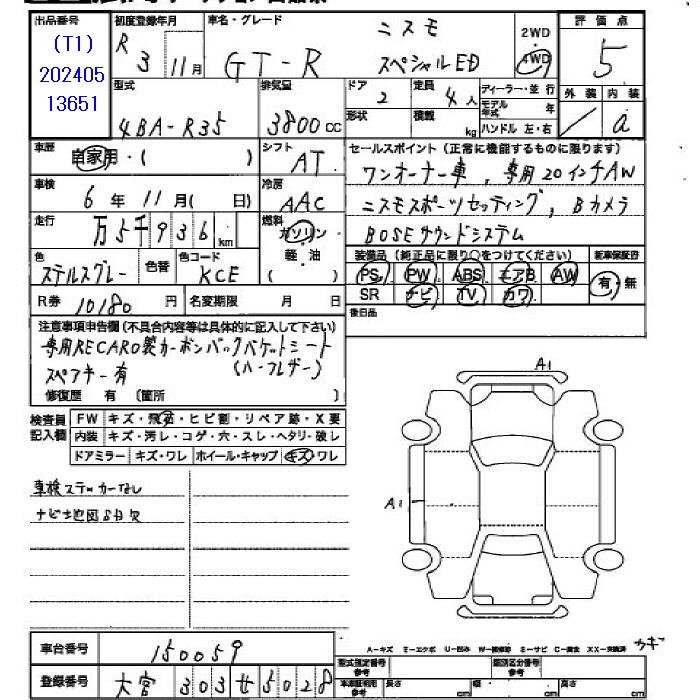 出品番号
(T1)
202405
13651
初度登録年月
R 3 11 月
車名・グレード
ニスモ
GT-R スペシャルED
2WD
4WD
評価点
5
外装 内装
/ a
型式
4BA-R35
排気量
3800 CC
ドア
2
形状
定員
4人
積載
kg
ディーラー・並行
モデル年式 年
ハンドル 左・右
車歴
自家用・( )
シフト
AT
セールスポイント(正常に機能するものに限ります)
ワンオーナー車, 専用20インチAW
ニスモスポーツセッティング, Bカメラ
BOSEサウンドシステム
車検
6 年 11 月( 日)
冷房
AAC
走行
万5千936 km
燃料
ガソリン
軽・油
( )
色
ステルスグレー
色替
色コード
KCE
装備品(純正品に限り○をつけてください)
PS PW ABS エアB AW
SR ナビ TV カワ
新車保証書
有・無
R券 10180 円
名変期限 月 日
後日品
注意事項申告欄(不具合内容等は具体的に記入して下さい)
専用RECARO製カーボンバックバケットシート
(ハーフレザー)
スペアキー有
修復歴 有 (箇所 )
検査員記入欄
FW キズ・飛石・ヒビ割・リペア跡・X要
内装 キズ・汚レ・コゲ・穴・スレ・ヘタリ・破レ
ドアミラー キズ・ワレ ホイール・キャップ キズ・ワレ
車検ステッカーなし
ナビ地図SD欠
A1
A1
車台番号 150059
登録番号 大宮 303 せ 5028
A-キズ E-エクボ U-凹み W-補修跡 S-サビ C-腐食 XX-交換済
カギ
型式指定番号参考
類別区分番号参考
車検証利用参考 長さ cm 幅 cm 高さ cm